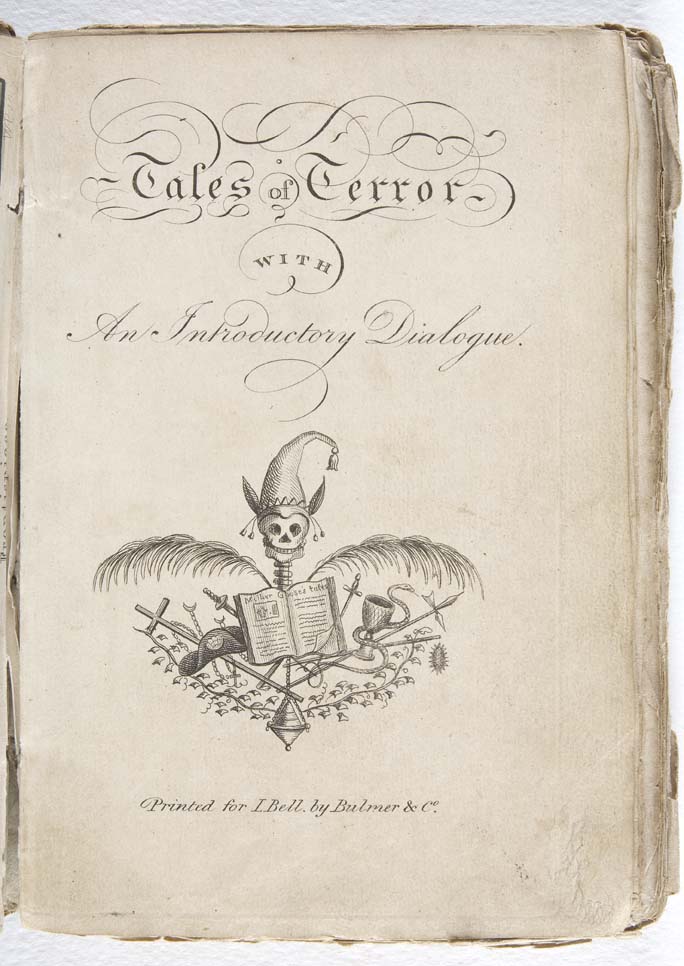 Tales of Terror
WITH
An Introductory Dialogue.
Mother Gooses tales
Printed for I. Bell. by Bulmer & Co.